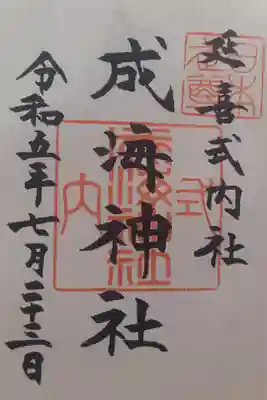 延喜式内社
成海神社
令和五年七月二十三日
式内
成海神社